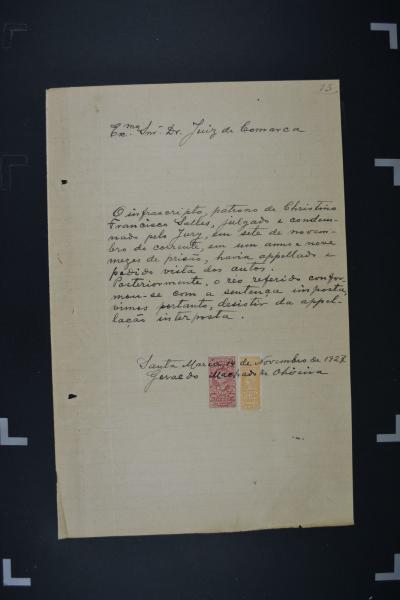 13.
Exmo. Snr. Dr. Juiz de Comarca
O infrascripto, patrono de Christino
Francisco Salles, julgado e condem-
nado pelo Jury, em sete de novem-
bro do corrente, em um anno e nove
mezes de prisão, havia appellado e
pedido vista dos autos.
Posteriormente, o réo referido confor-
mou-se com a sentença imposta,
vimos portanto, desistir da appel-
lação interposta.
Santa Maria, 14 de Novembro de 1927
Geraldo Machado de Oliveira